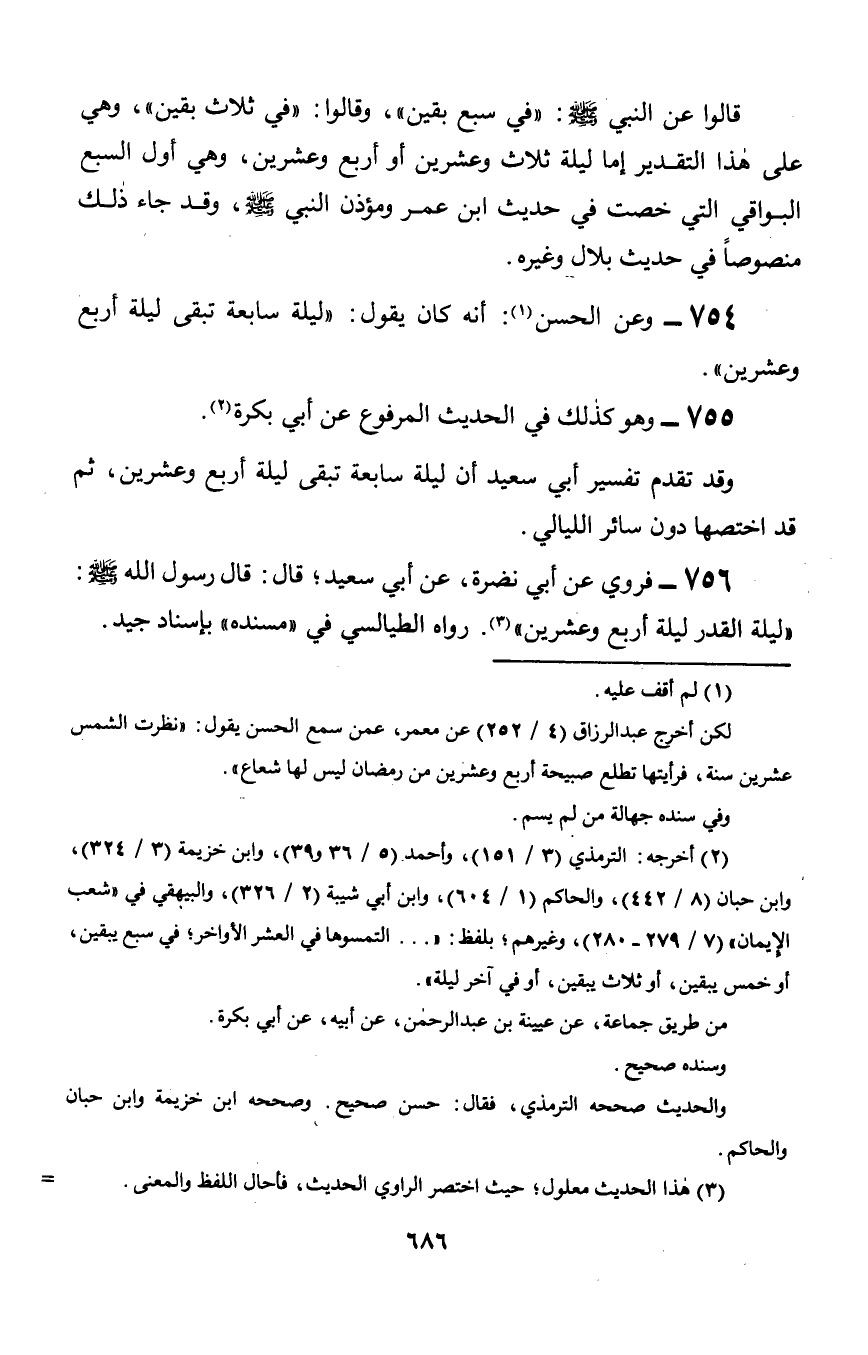 قالوا عن النبي ﷺ: «في سبع بقين»، وقالوا: «في ثلاث بقين»، وهي
على هٰذا التقدير إما ليلة ثلاث وعشرين أو أربع وعشرين، وهي أول السبع
البواقي التي خصت في حديث ابن عمر ومؤذن النبي ﷺ، وقد جاء ذٰلك
منصوصاً في حديث بلال وغيره.
٧٥٤ ــ وعن الحسن(١): أنه كان يقول: «ليلة سابعة تبقى ليلة أربع
وعشرين».
٧٥٥ ــ وهو كذٰلك في الحديث المرفوع عن أبي بكرة(٢).
وقد تقدم تفسير أبي سعيد أن ليلة سابعة تبقى ليلة أربع وعشرين، ثم
قد اختصها دون سائر الليالي.
٧٥٦ ــ فروي عن أبي نضرة، عن أبي سعيد؛ قال: قال رسول الله ﷺ:
«ليلة القدر ليلة أربع وعشرين»(٣). رواه الطيالسي في «مسنده» بإسناد جيد.
(١) لم أقف عليه.
لكن أخرج عبدالرزاق (٤ / ٢٥٢) عن معمر، عمن سمع الحسن يقول: «نظرت الشمس
عشرين سنة، فرأيتها تطلع صبيحة أربع وعشرين من رمضان ليس لها شعاع».
وفي سنده جهالة من لم يسم.
(٢) أخرجه: الترمذي (٣ / ١٥١)، وأحمد (٥ / ٣٦ و٣٩)، وابن خزيمة (٣ / ٣٢٤)،
وابن حبان (٨ / ٤٤٢)، والحاكم (١ / ٦٠٤)، وابن أبي شيبة (٢ / ٣٢٦)، والبيهقي في «شعب
الإيمان» (٧ / ٢٧٩ ـ ٢٨٠)، وغيرهم؛ بلفظ: «... التمسوها في العشر الأواخر؛ في سبع يبقين،
أو خمس يبقين، أو ثلاث يبقين، أو في آخر ليلة».
من طريق جماعة، عن عيينة بن عبدالرحمٰن، عن أبيه، عن أبي بكرة.
وسنده صحيح.
والحديث صححه الترمذي، فقال: حسن صحيح. وصححه ابن خزيمة وابن حبان
والحاكم.
(٣) هٰذا الحديث معلول؛ حيث اختصر الراوي الحديث، فأحال اللفظ والمعنى. =
٦٨٦